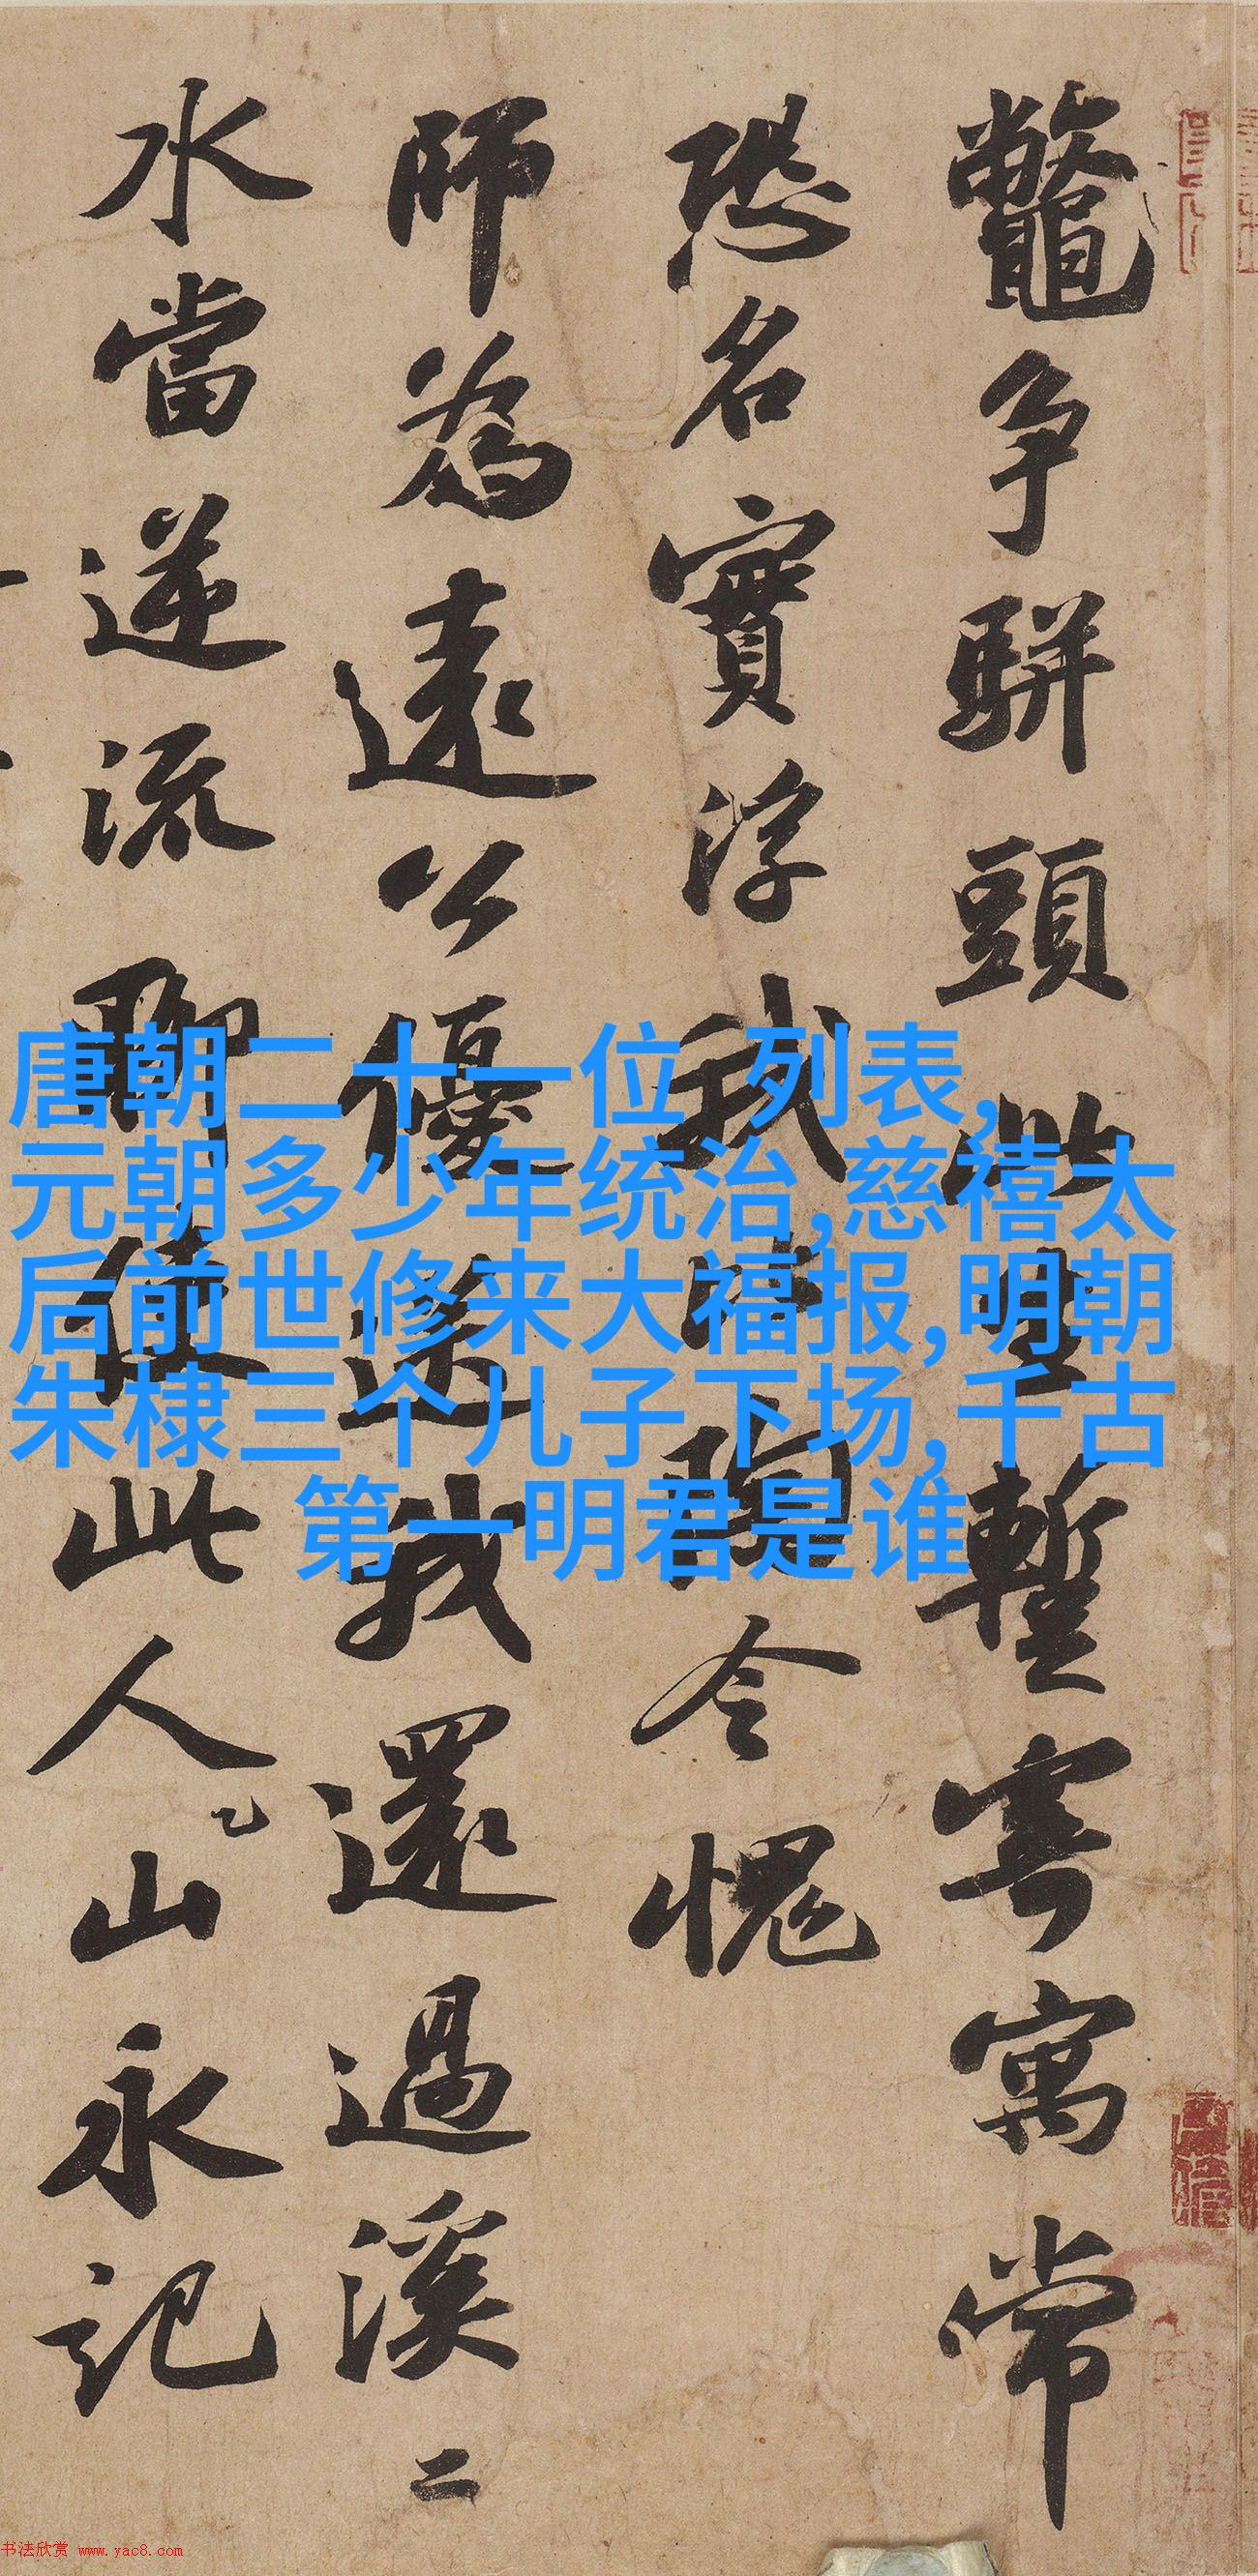 鼈争駢頭此生暫寄寓常
恐名實浮我比陶令愧
師為遠公優送我還過溪二
水當逆流聊使此人山永記
唐朝二十一位 列表,
元朝多少年统治,慈禧太
后前世修来大福报,明朝
朱棣三个儿子下场,千古
第一明君是谁
书法欣赏 www.yac8.com